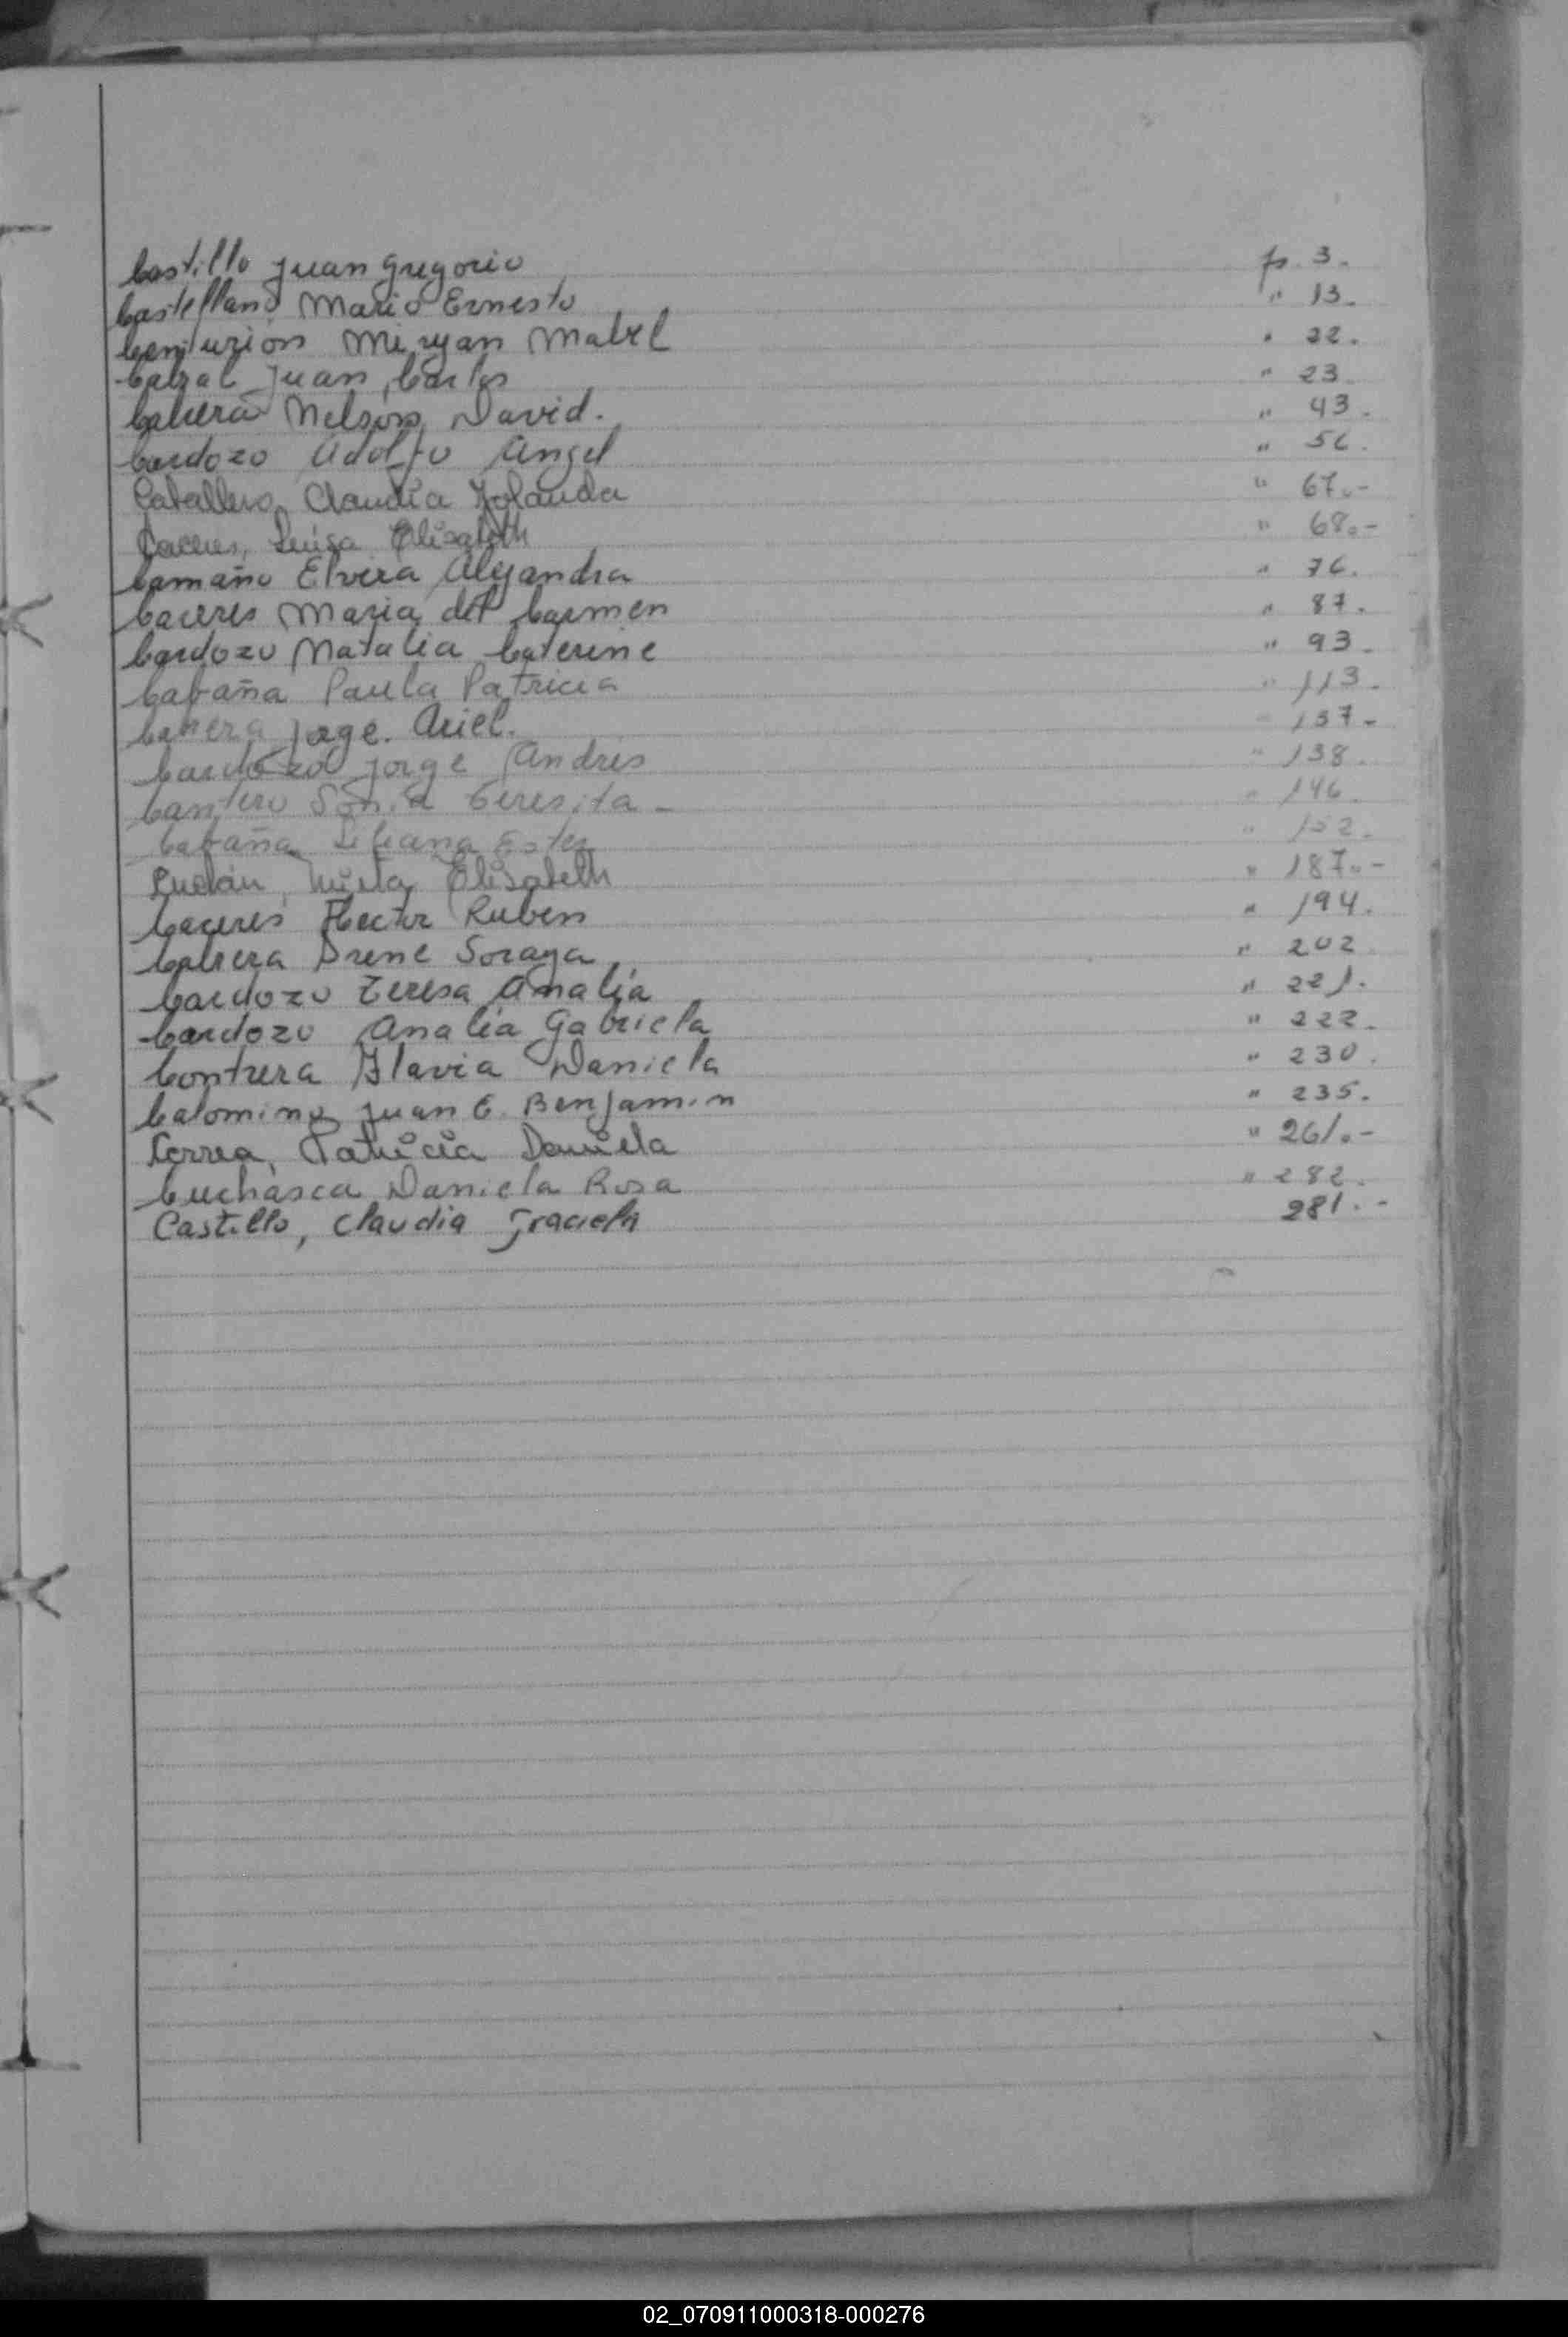 Castillo Juan Gregorio p. 3.
Castellano Mario Ernesto " 13.
Centurion Miryan Mabel " 22.
Cabral Juan Carlos " 23.
Cabrera Nelson David. " 43.
Cardozo Adolfo Angel " 56.
Caballero, Claudia Yolanda " 67.-
Caceres, Luisa Elisabeth " 68.-
Camaño Elvera Alejandra " 76.
Caceres Maria del Carmen " 87.
Cardozo Natalia Caterine " 93.
Cabaña Paula Patricia " 113.
Jorge. Ariel. " 137.
Cardozo Jorge Andres " 138.
Cantero Sonia Teresita - " 146.
Cabaña Liliana Ester " 152.
Mirta Elisabeth " 187.-
Caceres Hector Ruben " 194.
Cabrera Irene Soraya " 202
Cardozo Teresa Amalia " 221.
Cardozo Analia Gabriela " 222.
Contrera Flavia Daniela " 230.
Calomino Juan E. Benjamin " 235.
Correa, Patricia Daniela " 261.-
Cuchasca Daniela Rosa " 282.
Castillo, Claudia Graciela 281.-
02_070911000318-000276